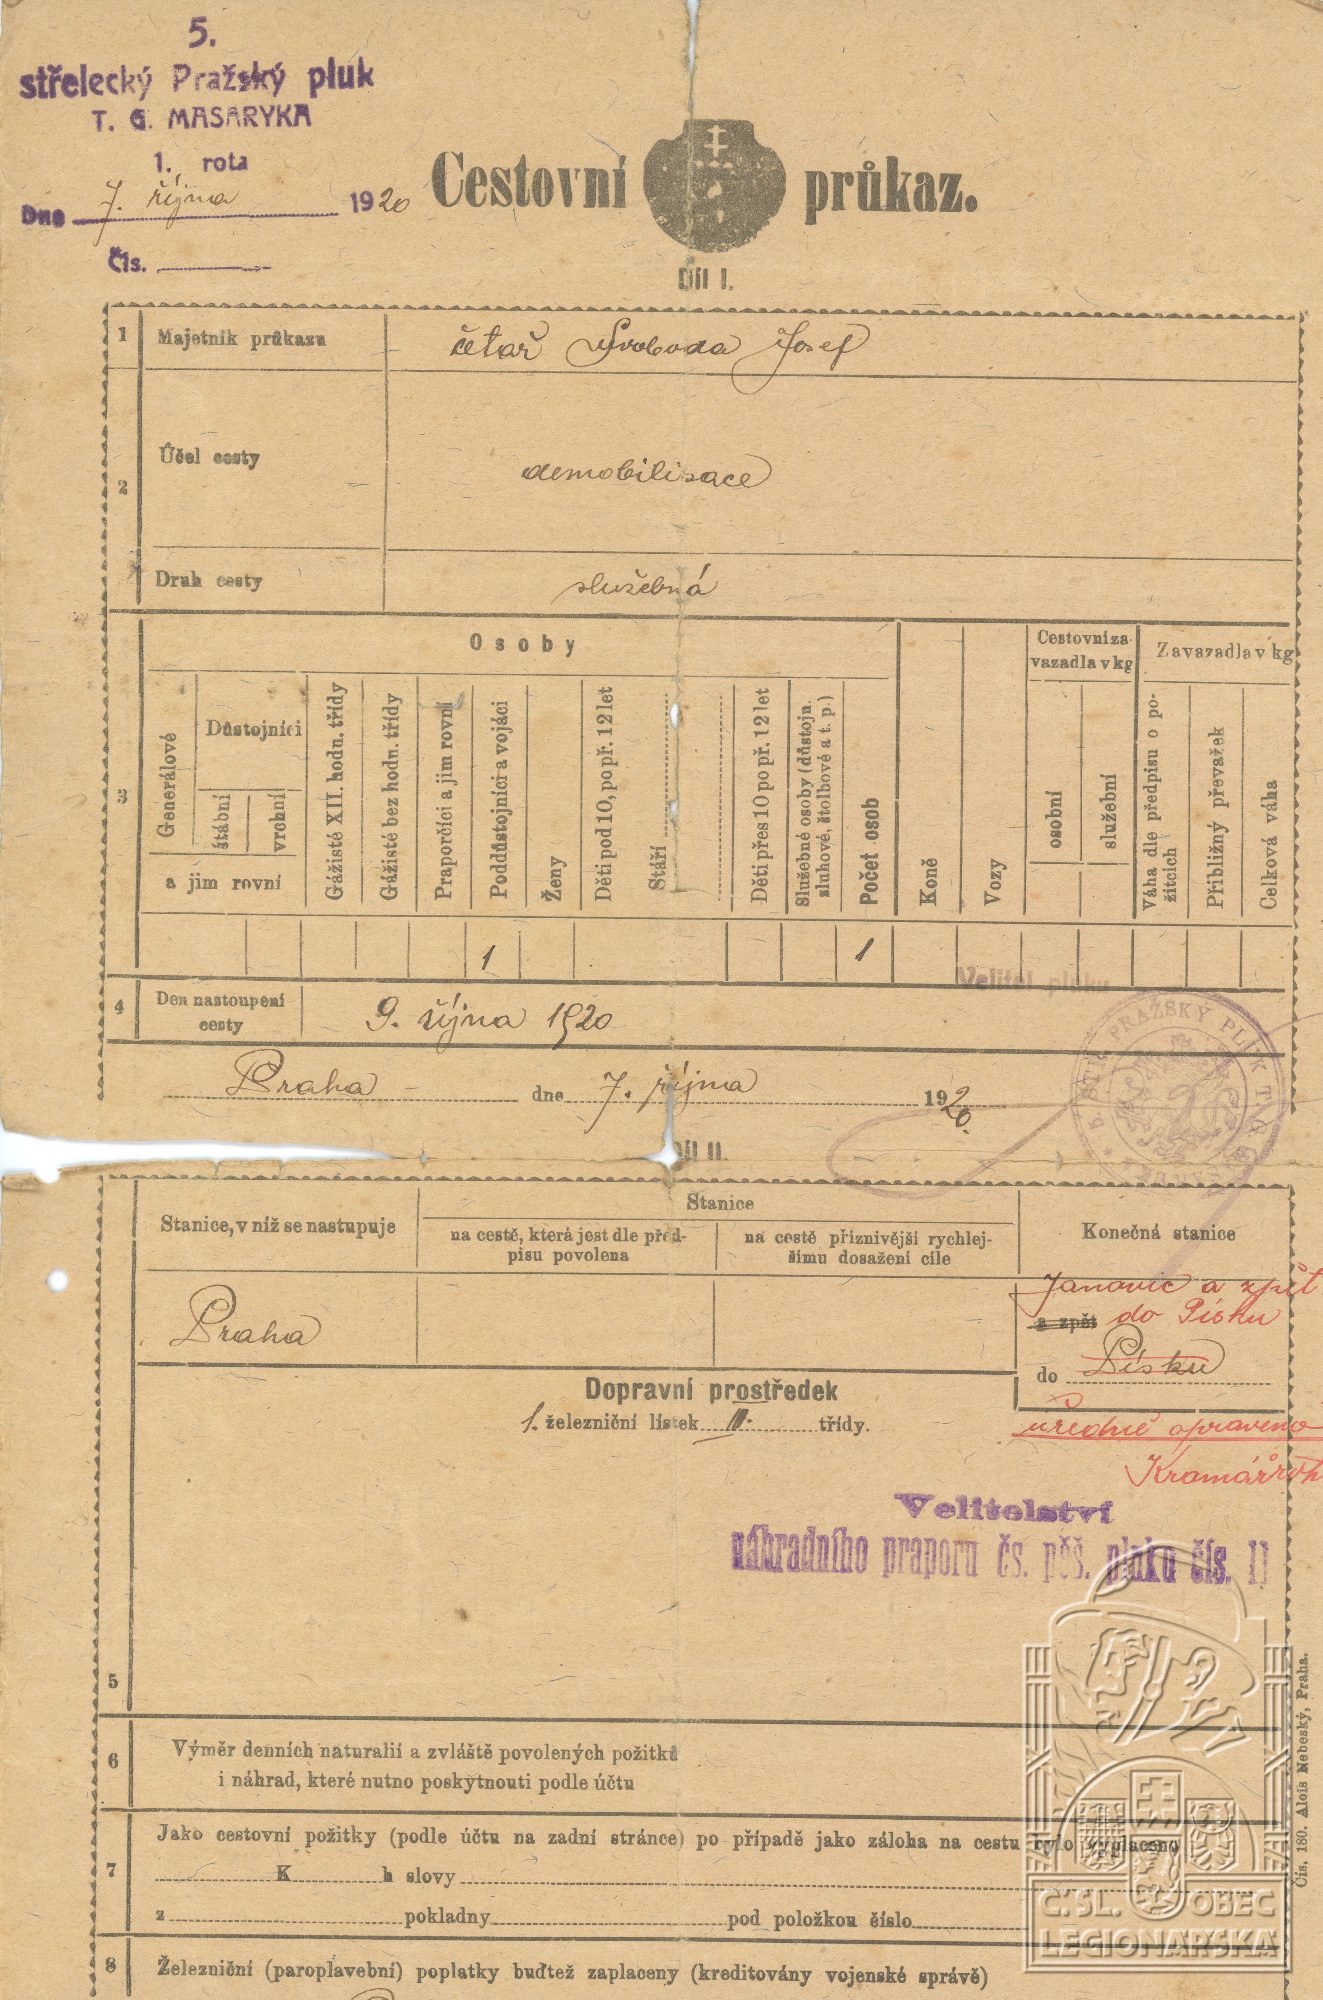 5.
střelecký Pražský pluk
T. G. MASARYKA
1. rota
Dne 7. října 1920
Čís.
Cestovní průkaz.
Díl I.
1 Majetník průkazu četař Svoboda Josef
2 Účel cesty demobilisace
Druh cesty služebná
3
Osoby
Generálové
Důstojníci
štábní
vrchní
a jim rovní
Gážisté XII. hodn. třídy
Gážisté bez hodn. třídy
Praporčíci a jim rovní
Poddůstojníci a vojáci
Ženy
Děti pod 10, po př. 12 let
Stáří
Děti přes 10 po př. 12 let
Služebné osoby (důstoju.
sluhové, štolbové a t. p.)
Počet osob
Koně
Vozy
Cestovní za-
vazadla v kg
osobní
služební
Zavazadla v kg
Váha dle předpisu o po-
žitcích
Přibližný převažek
Celková váha
1 1
Velitel pluku
4 Den nastoupení
cesty
9. října 1920
Praha dne 7. října 1920.
5. STŘ. PRAŽSKÝ PLUK T. G.
Díl II.
Stanice, v níž se nastupuje
Stanice
na cestě, která jest dle před-
pisu povolena
na cestě příznivější rychlej-
šímu dosažení cíle
Konečná stanice
Praha
Janovic a zpět
a zpět do Písku
do Písku
Dopravní prostředek
1. železniční lístek II. třídy.
úředně opraveno
Velitelství
náhradního praporu čs. pěš. pluku čís. 11
5
6 Výměr denních naturalií a zvláště povolených požitků
i náhrad, které nutno poskytnouti podle účtu
7 Jako cestovní požitky (podle účtu na zadní stránce) po případě jako záloha na cestu bylo vyplaceno
K h slovy
z pokladny pod položkou číslo
8 Železniční (paroplavební) poplatky buďtež zaplaceny (kreditovány vojenské správě)
Čís. 180. Alois Nebeský, Praha.
Č.SL. OBEC
LEGIONÁŘSKÁ